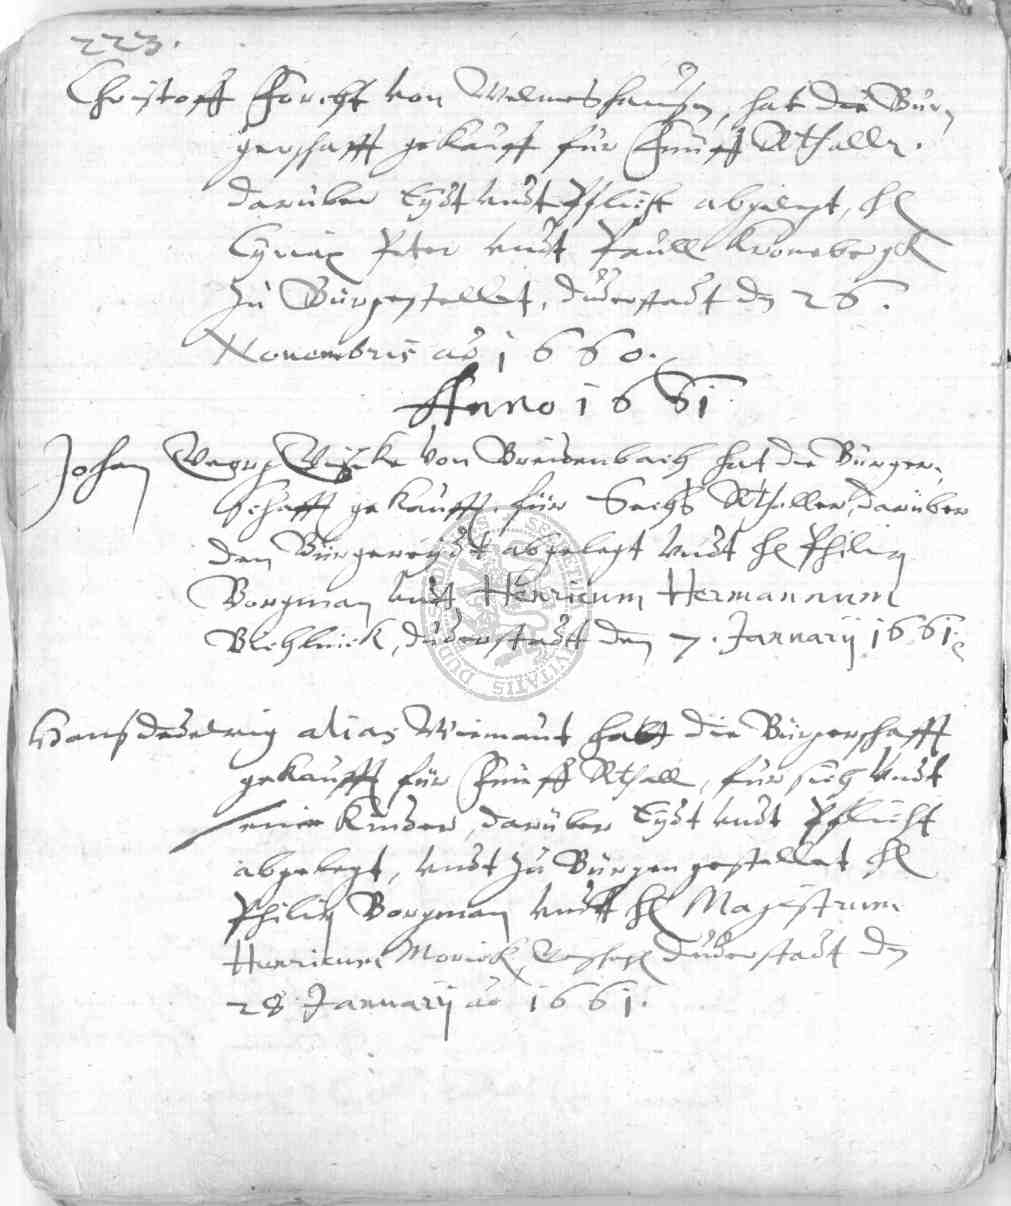 223.
Christoff Forcht von Welmeshausen, hat die Bür-
gerschafft gekaufft für Fünff Rthaller.
darüber Eydt undt Pflicht abgelegt, H
Cyriax Peter undt Paull Kronebergk
Zu Bürgestellet, duderstadt dn 26.
Novembris ao 1660.
Anno 1661
Johan von Breidenbach hat die Bürger-
schafft gekaufft für Sechs Rthaller, darüber
den Bürgereydt abgelegt undt H Philip
Borgman undt Henricum Hermannum
duderstadt den 7. Januarij 1661.
Hanß alias hatt die Bürgerschafft
gekaufft für Fünff Rthall, für sich undt
seine Kinder, darüber Eydt undt Pflicht
abgelegt, undt zu Bürgen gestellet H
Philip Borgman undt H Magistrum
Henricum duderstadt dn
28 Januarij ao 1661.
SECRETUM CIVITATIS DUDERSTADENSIS